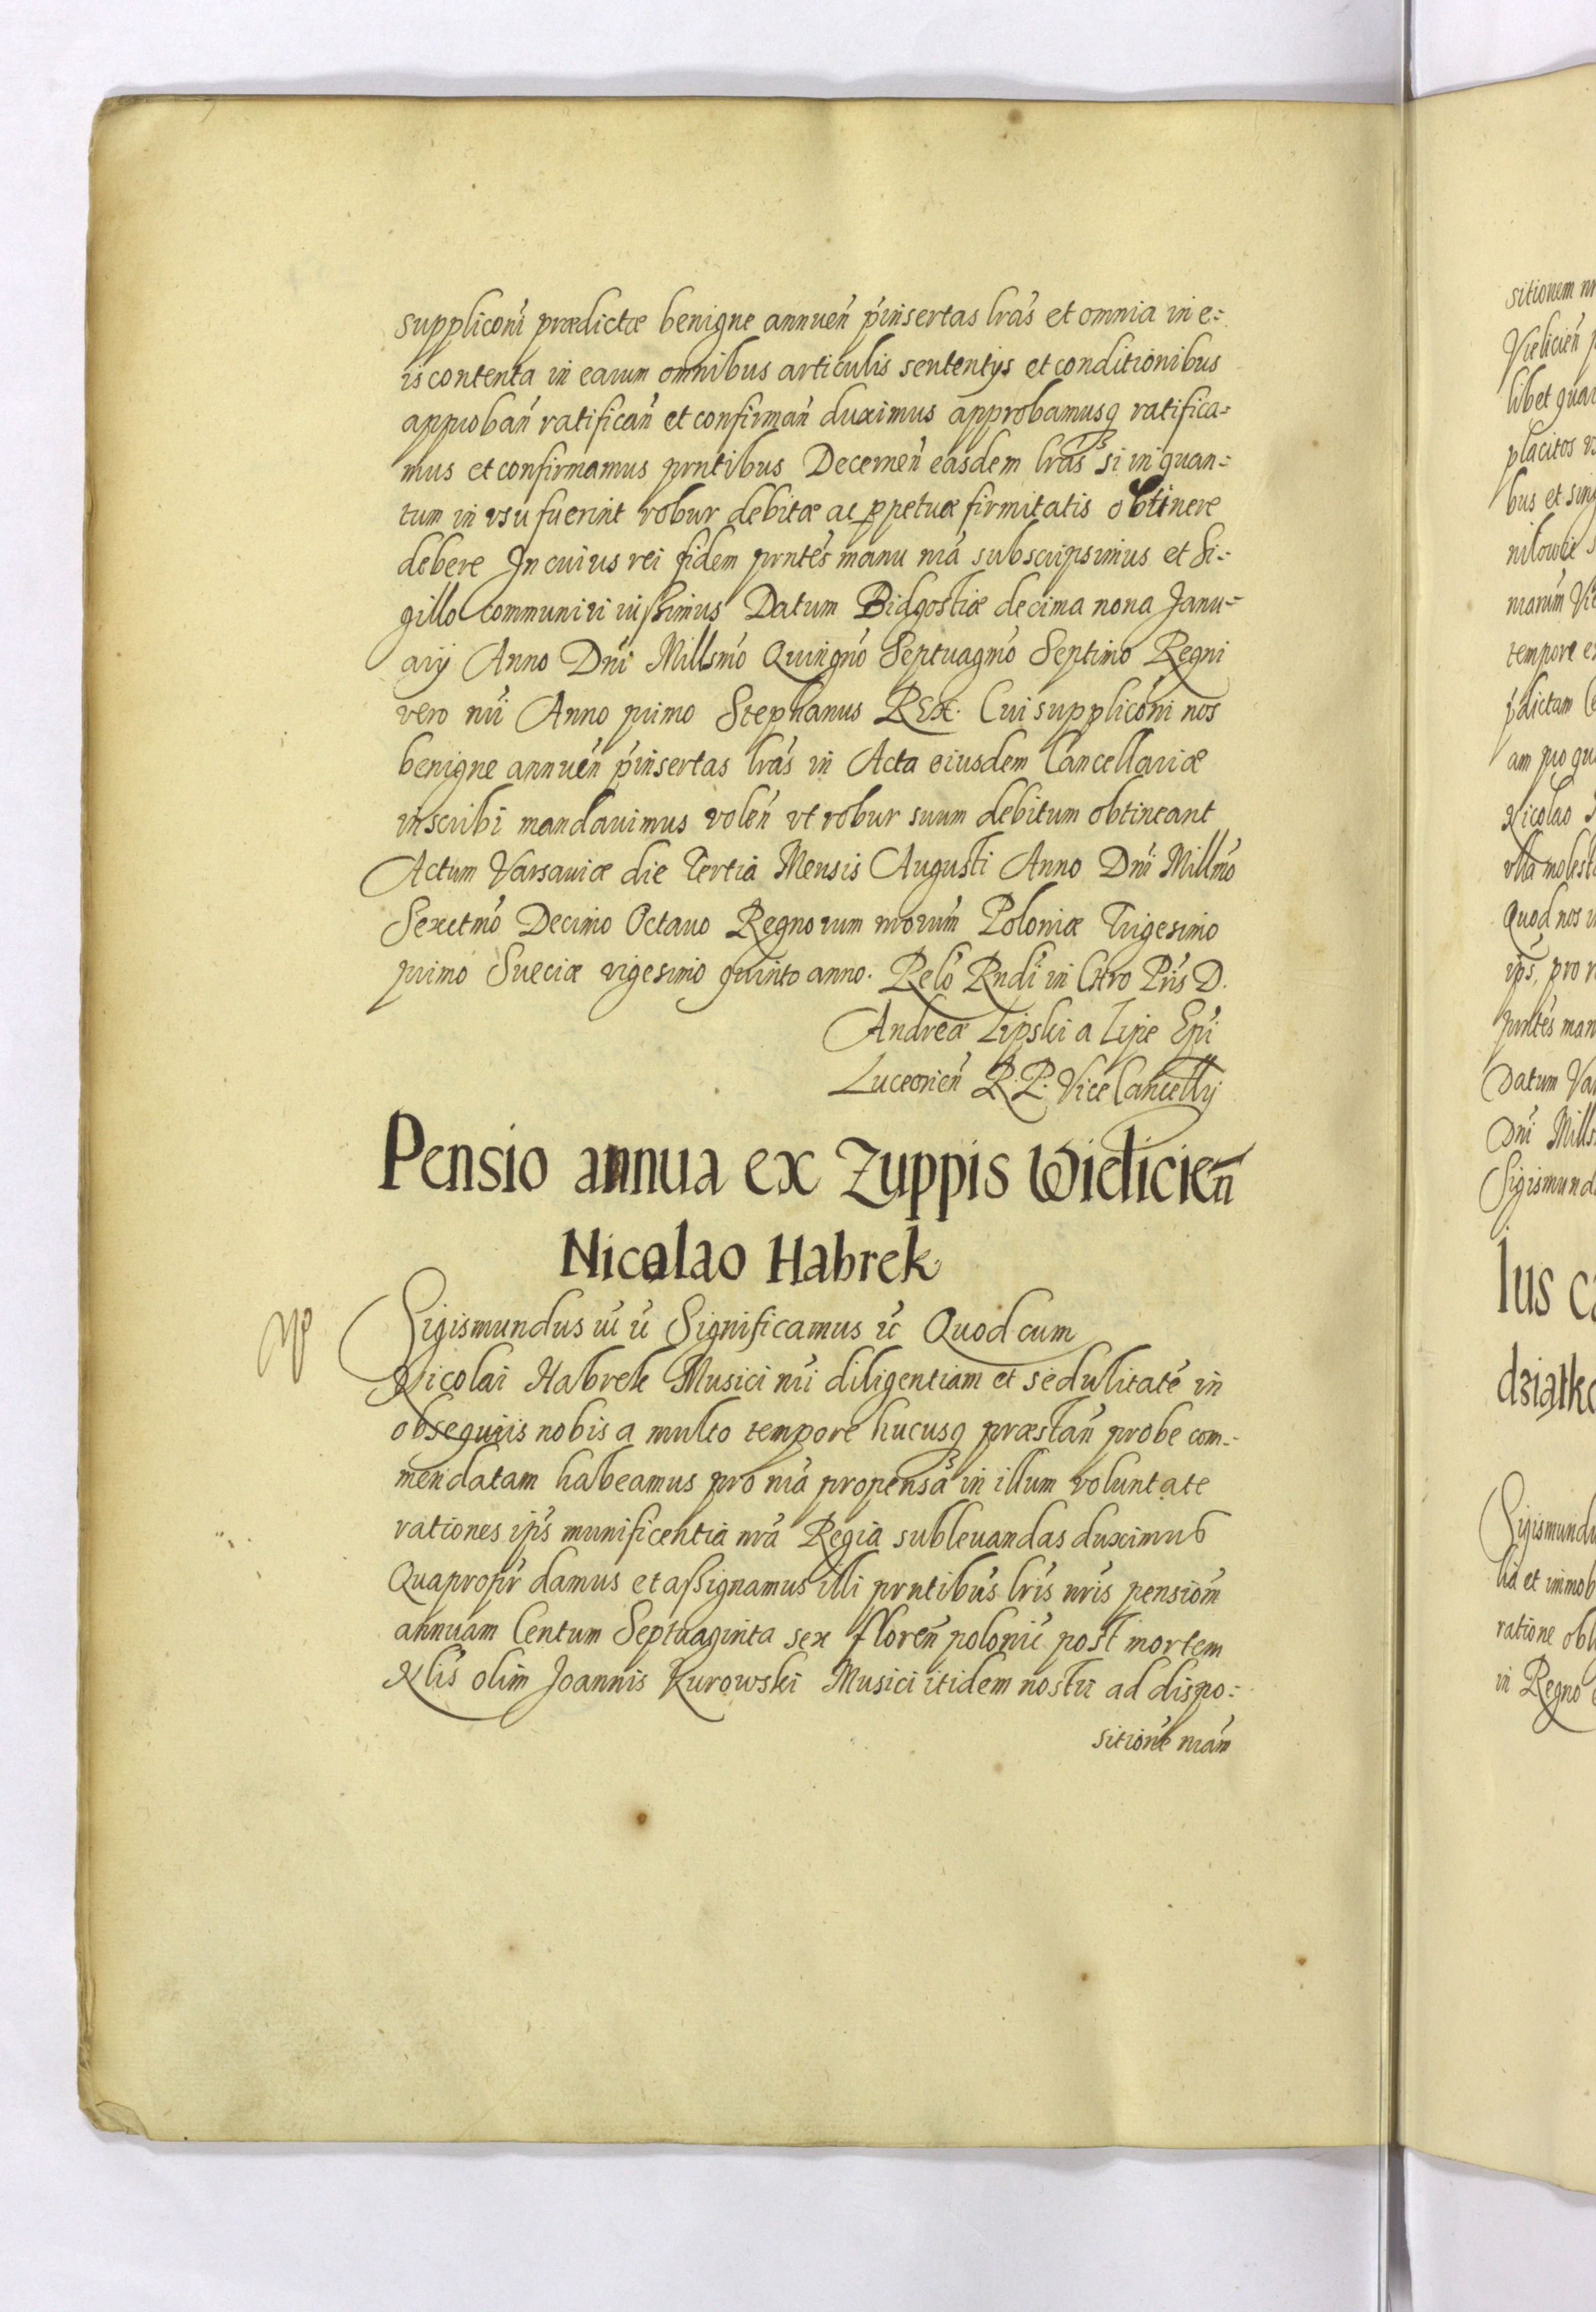 suppliconi prædictæ benigne annuen̄ p̄insertas lrãs et omnia in e:
is contenta in earum omnibus articulis sententijs et conditionibus
approban̄ ratifican̄ et confirman̄ duximus approbamusq ratifica:
mus et confirmamus prntibus Decernen̄ easdem lrãs si in quan:
tum in vsu fuerint robur debitæ ac ppetuæ firmitatis obtinere
debere In cuius rei fidem prntes manu nrã subscripsimus et Si:
gillo communiri iussimus Datum Bidgostiæ decima nona Janu:
arij Anno Dni Millsmo Quingno Septuagmo Septimo Regni
vero nri Anno primo Stephanus REX. Cui suppliconi nos
benigne annuen̄ p̄insertas lrãs in Acta eiusdem Cancellariæ
inscribi mandauimus volen̄ vt robur suum debitum obtineant
Actum Varsauiæ die Tertia Mensis Augusti Anno Dni Millmo
Sexctmo Decimo Octauo Regnorum nrorum Poloniæ Trigesimo
primo Sueciæ vigesimo quinto anno. Relo Rndi in Chro Pris D.
Andreæ Lipski a Lipie Epi
Luceorien̄ R. P. Vice Cancellrij
Pensio annua ex Zuppis Wielicien̄
Nicolao Habrek
Sigismundus Significamus Quod cum
Nicolai Habrek Musici nri diligentiam et sedulitatē in
obsequiis nobis a multo tempore hucusq præstan̄ probe com:
mendatam habeamus pro nrã propensa in illum voluntate
rationes ips munificentia nrã Regia subleuandas duximus
Quapropr damus et assignamus illi prntibus lris nris pensiom
annuam Centum Septuaginta sex floren̄ polonic post mortem
Nlis olim Joannis Kurowski Musici itidem nostri ad dispo:
sitionē nram
sitionem nr
Vielicien̄ p
libet quar
placitos
bus et sing
nilowie
niarum Vie
tempore
dictam
am pro qu
Nicolao
vlla molest
Quod nos
ips, pro
prntes man
Datum Va
Dni Mills
Sigismund
Ius ca
dziatko
Sigismundu
lia et immob
ratione obl
in Regno